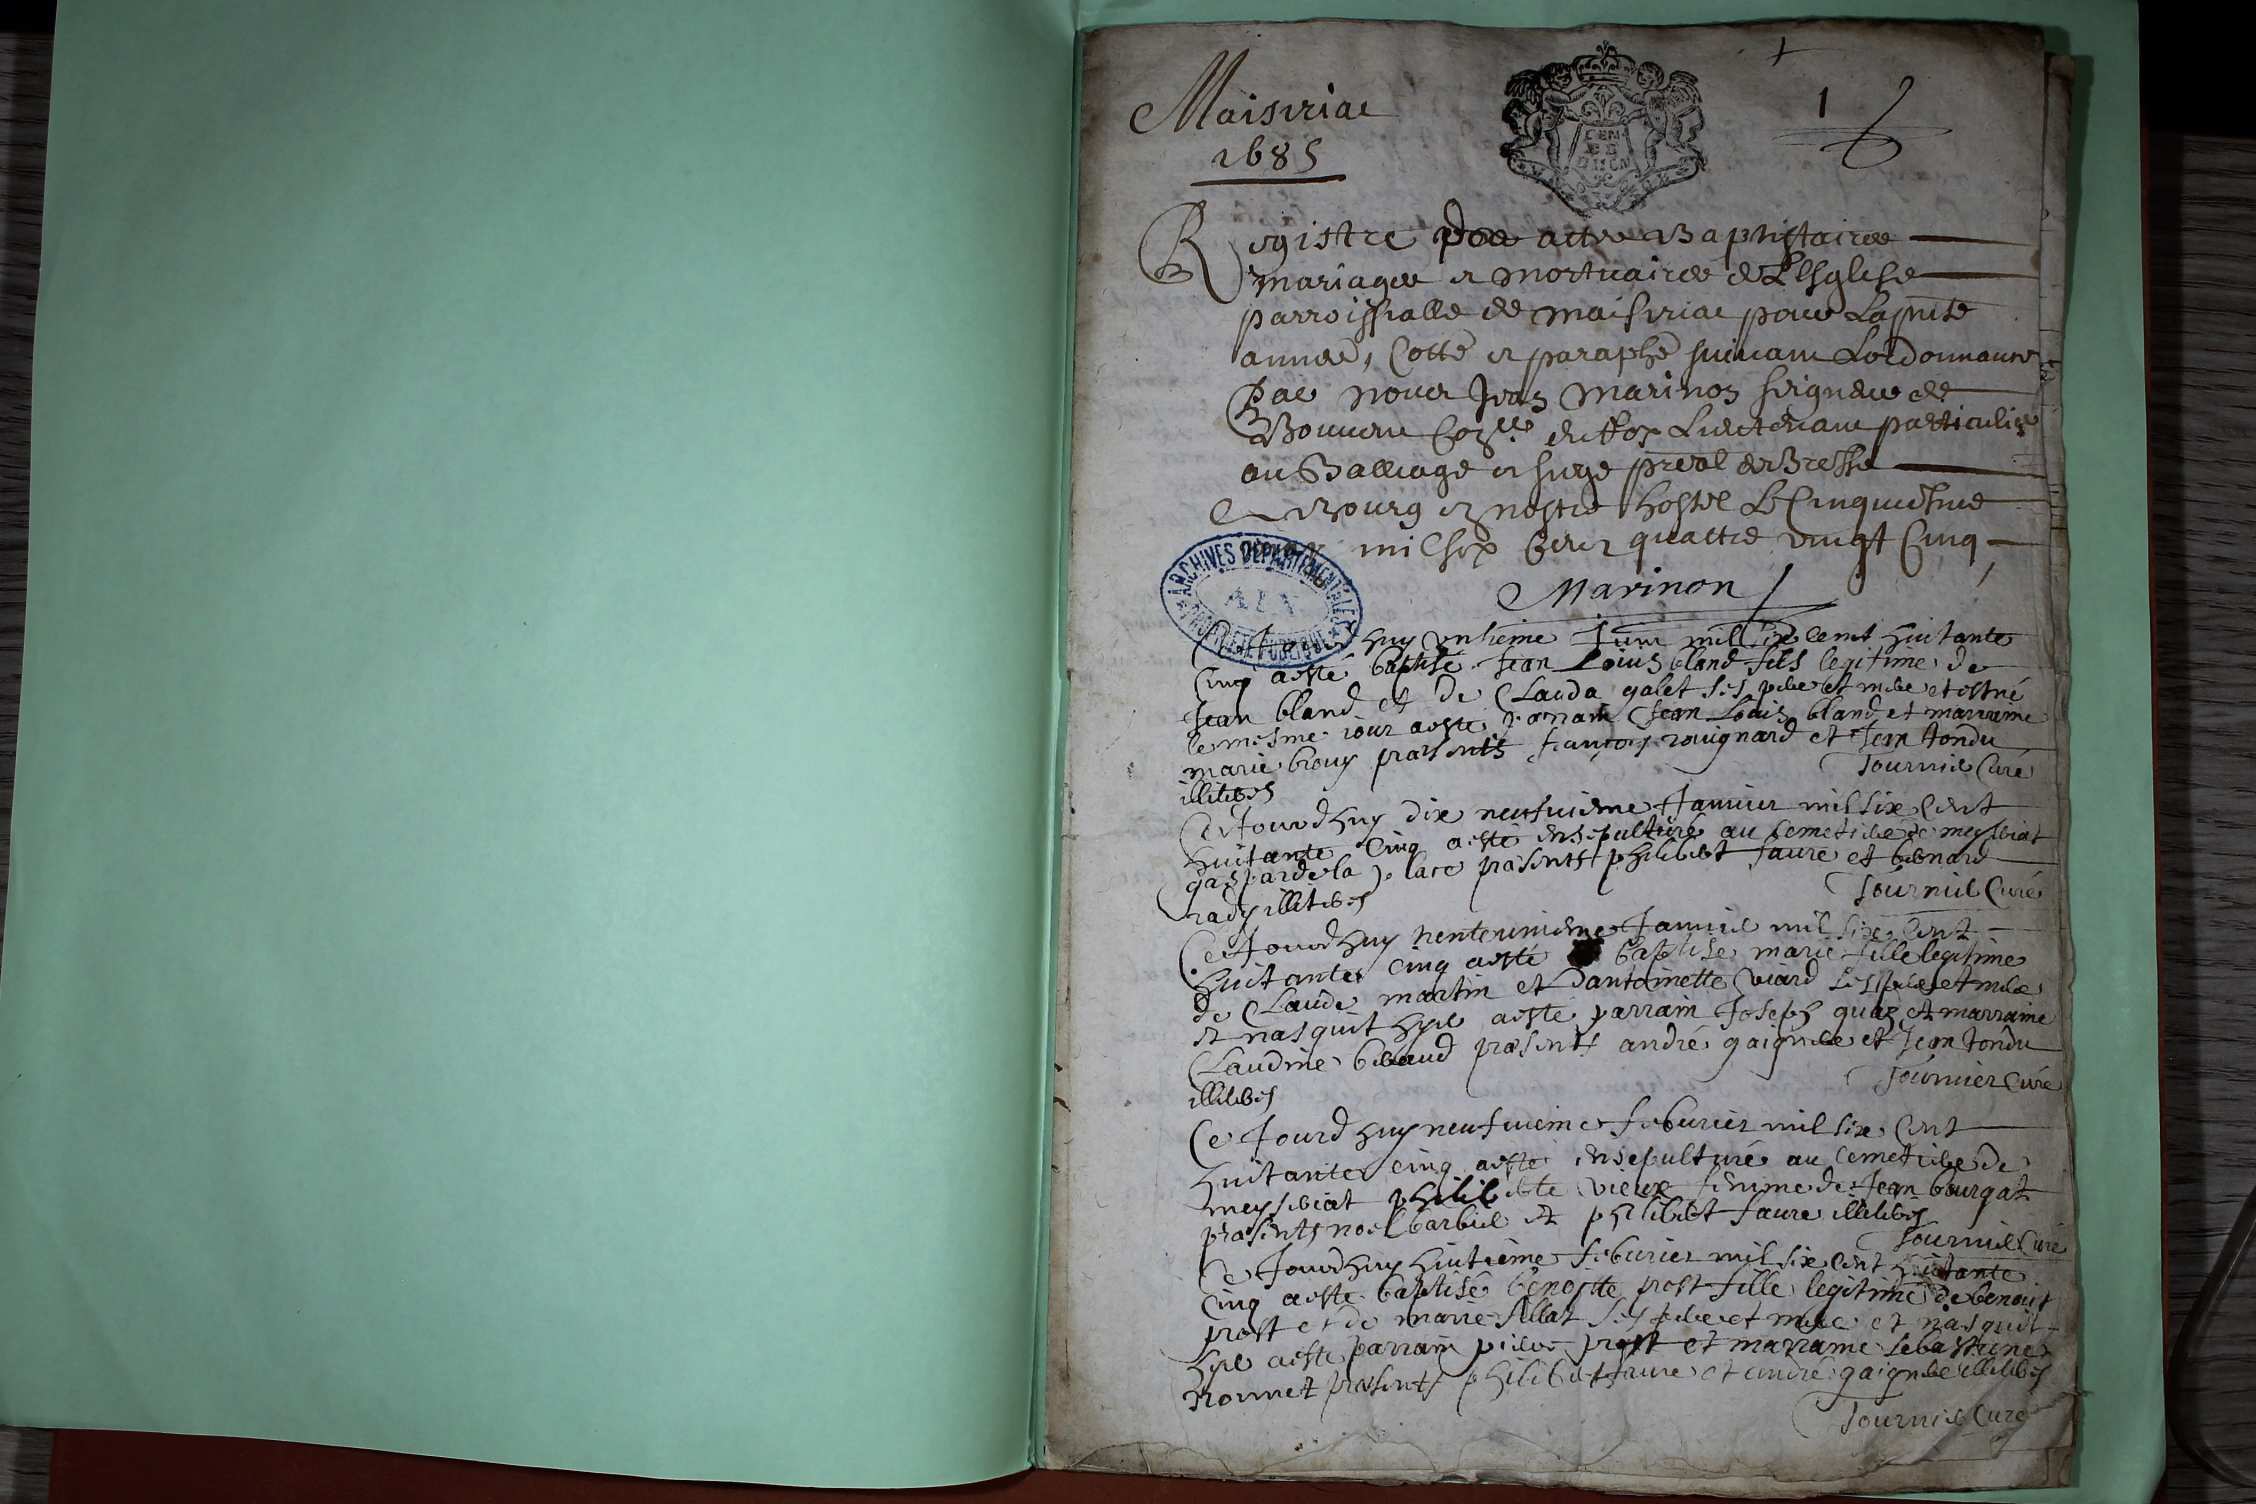 Maisiriac
1685
1
GEN
DE
Registre des actes Baptistaires
mariages et mortuaires de L'Esglise
parroissialle de Maisiriac pour La pnte
année, Cotté et paraphé suivant Lordonnance
Par nous Jean Marinon seigneur de
Coner. du Roy Lieutenant particulier
au Balliage et siege preal de Bresse
A Bourg en nostre hostel Le Cinquiesme
mil six Cens quattre vingt Cinq
Marinon
ARCHIVES DEPARTEMENTALES
AIN
PROPRIETE PUBLIQUE
huy unsieme Janv mil six cent huitante
cinq a esté baptisé Jean Louis bland fils legitime de
Jean bland et de Clauda galet ses pere et mere et est né
le mesme jour a esté parrain Jean Louis bland et marraine
marie brouy præsents françois rouignard et Jean tondu
illiteres Tournier Curé
Ce Jourdhuy dix neufuieme Januier mil six Cent
huitante Cinq a esté ensepulturé au cemetiere de meyseriat
gaspard de la place præsents philibert faure et benard
rady illiteres Tournier Curé
Ce Jourdhuy trente unieme Januier mil six Cent
huitante cinq a esté baptisé marie fille legitime
de Claude martin et D'antoinette viard ses pere et mere
et nasquit hyer a esté parrain Joseph et marraine
Claudine beraud præsents andré gaignere et Jean tondu
illiteres Tournier Curé
Ce Jourd huy neufuieme feburier mil six Cent
huitante cinq a esté ensepulturé au cemetiere de
meyseriat philiberte vieux femme de Jean bourgat
præsents noel barbier et philibert faure illiteres
Tournier Curé
Ce Jourdhuy huitieme feburier mil six cent huitante
cinq a esté baptisé benoitte prost fille legitime de benoit
prost et de marie Allat ses pere et mere et nasquit
hyer a esté parrain pierre prost et marraine sebastiene
præsents philibert faure et andré gaignere illiteres
Tournier Curé